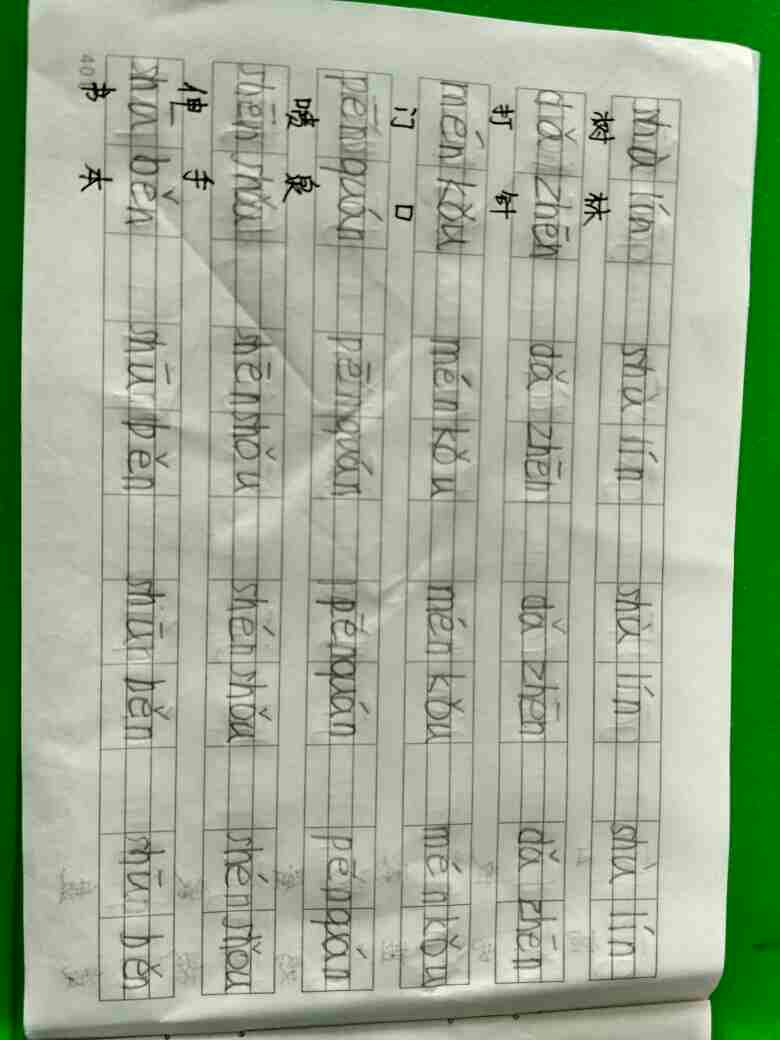 shù lín shù lín shù lín shù lín
树 林
dǎ zhēn dǎ zhēn dǎ zhēn dǎ zhēn
打 针
mén kǒu mén kǒu mén kǒu mén kǒu
门 口
pēn quán pēn quán pēn quán pēn quán
喷 泉
shēn shǒu shēn shǒu shén shǒu shén shǒu
伸 手
shū běn shū běn shūn běn shūn běn
书 本
40